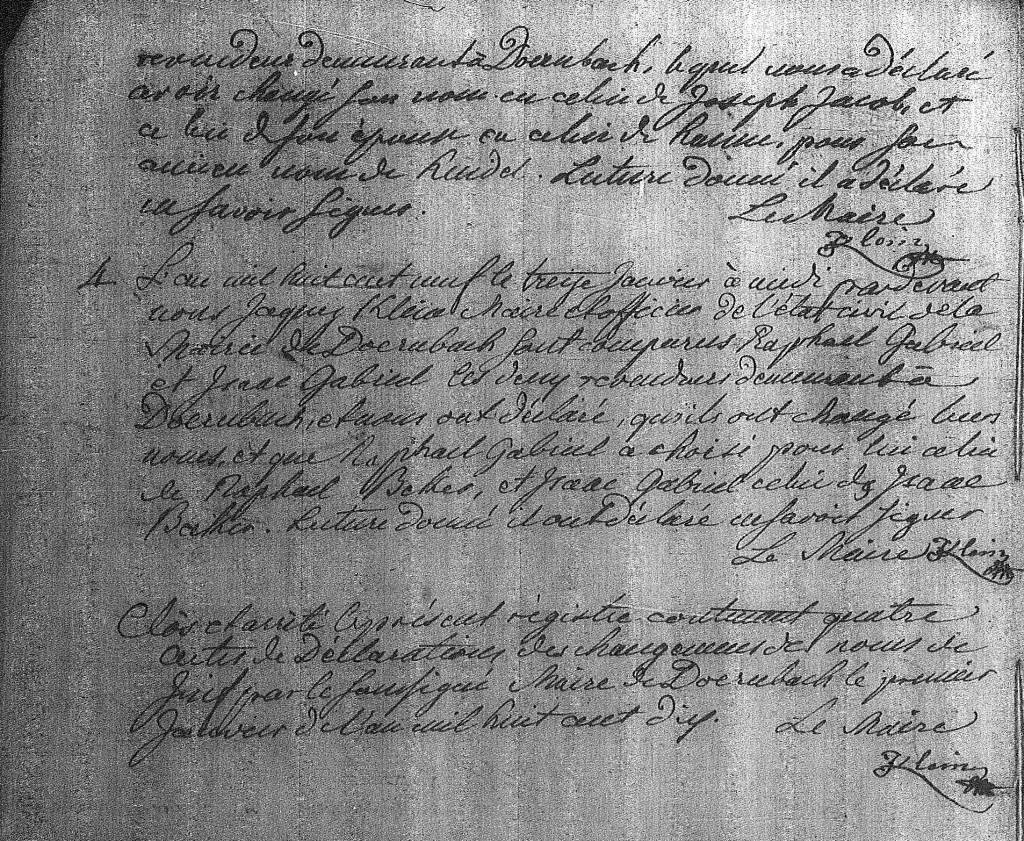 revendeur demeurant à Doernbach, lequel nous a déclaré
avoir changé son nom en celui de Joseph Jacob, et
celui de son épouse en celui de Hanne, pour son
ancien nom de Hendel. Lecture donné il a déclaré
ne savoir signer.
Le Maire
Klein
4 L'an mil huit cent neuf le treize Janvier à midi pardevant
nous Jaques Klein Maire et officier de l'état civil de la
Mairie de Doernbach sont comparus Raphael Gabriel
et Isaac Gabriel les deux revendeurs demeurant à
Doernbach, et nous ont déclaré, qu'ils ont changé leurs
noms, et que Raphael Gabriel a choisi pour lui celui
de Raphael Beker, et Isaac Gabriel celui de Isaac
Beker. Lecture donné il ont déclaré ne savoir signer
Le Maire Klein
Clos et arrêté le présent régistre contenant quatre
actes de Déclarations des changemens des noms de
Juif par le soussigné Maire de Doernbach le premier
Janvier de l'an mil huit cent dix. Le Maire
Klein